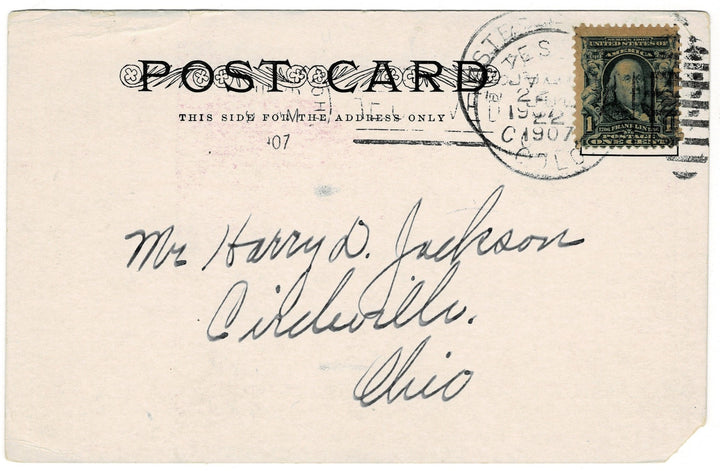 POST CARD
THIS SIDE FOR THE ADDRESS ONLY
'07
1907
COLO
SERIES 1902
UNITED STATES OF
AMERICA
1
POSTAGE
ONE CENT
Mr Harry D. Jackson
Circleville.
Ohio